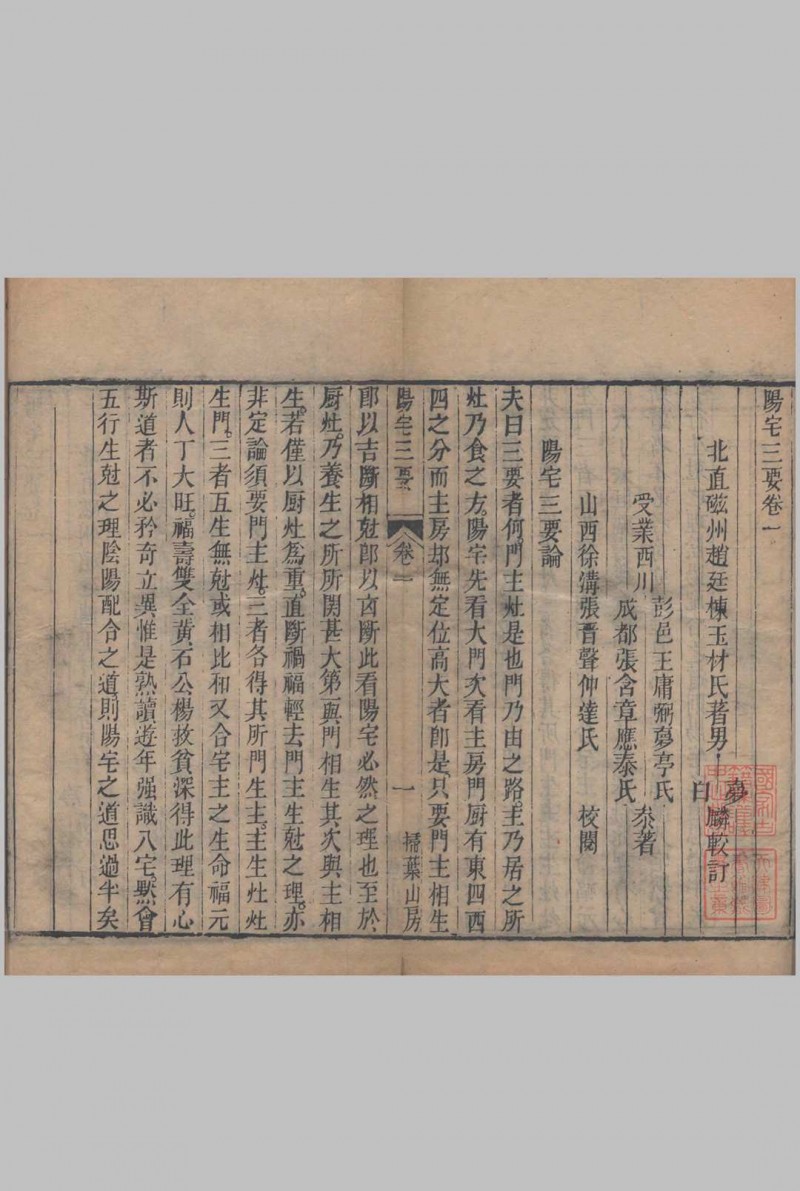 陽宅三要卷一
北直磁州趙廷棟玉材氏著男
夢
白
麟較訂
彭邑王庸弼夢亭氏
受業西川
成都張含章應泰氏
叅著
山西徐溝張晋聲仲達氏
校閱
陽宅三要論
夫曰三要者何門主灶是也門乃由之路主乃居之所
灶乃食之方陽宅先看大門次看主房門厨有東四西
四之分而主房却無定位高大者卽是只要門主相生
陽宅三要
卷一
一
掃葉山房
郎以吉斷相尅郎以凶斷此看陽宅必然之理也至於
厨灶乃養生之所所関甚大第一與門相生其次與主相
生若僅以厨灶為重直斷禍福輕去門主生尅之理亦
非定論須要門主灶三者各得其所門生主主生灶灶
生門三者互生無尅或相比和又合宅主之生命福元
則人丁大旺福壽雙全黃石公楊救貧深得此理有心
斯道者不必矜奇立異惟是熟讀遊年强識八宅默會
五行生尅之理陰陽配合之道則陽宅之道思過半矣